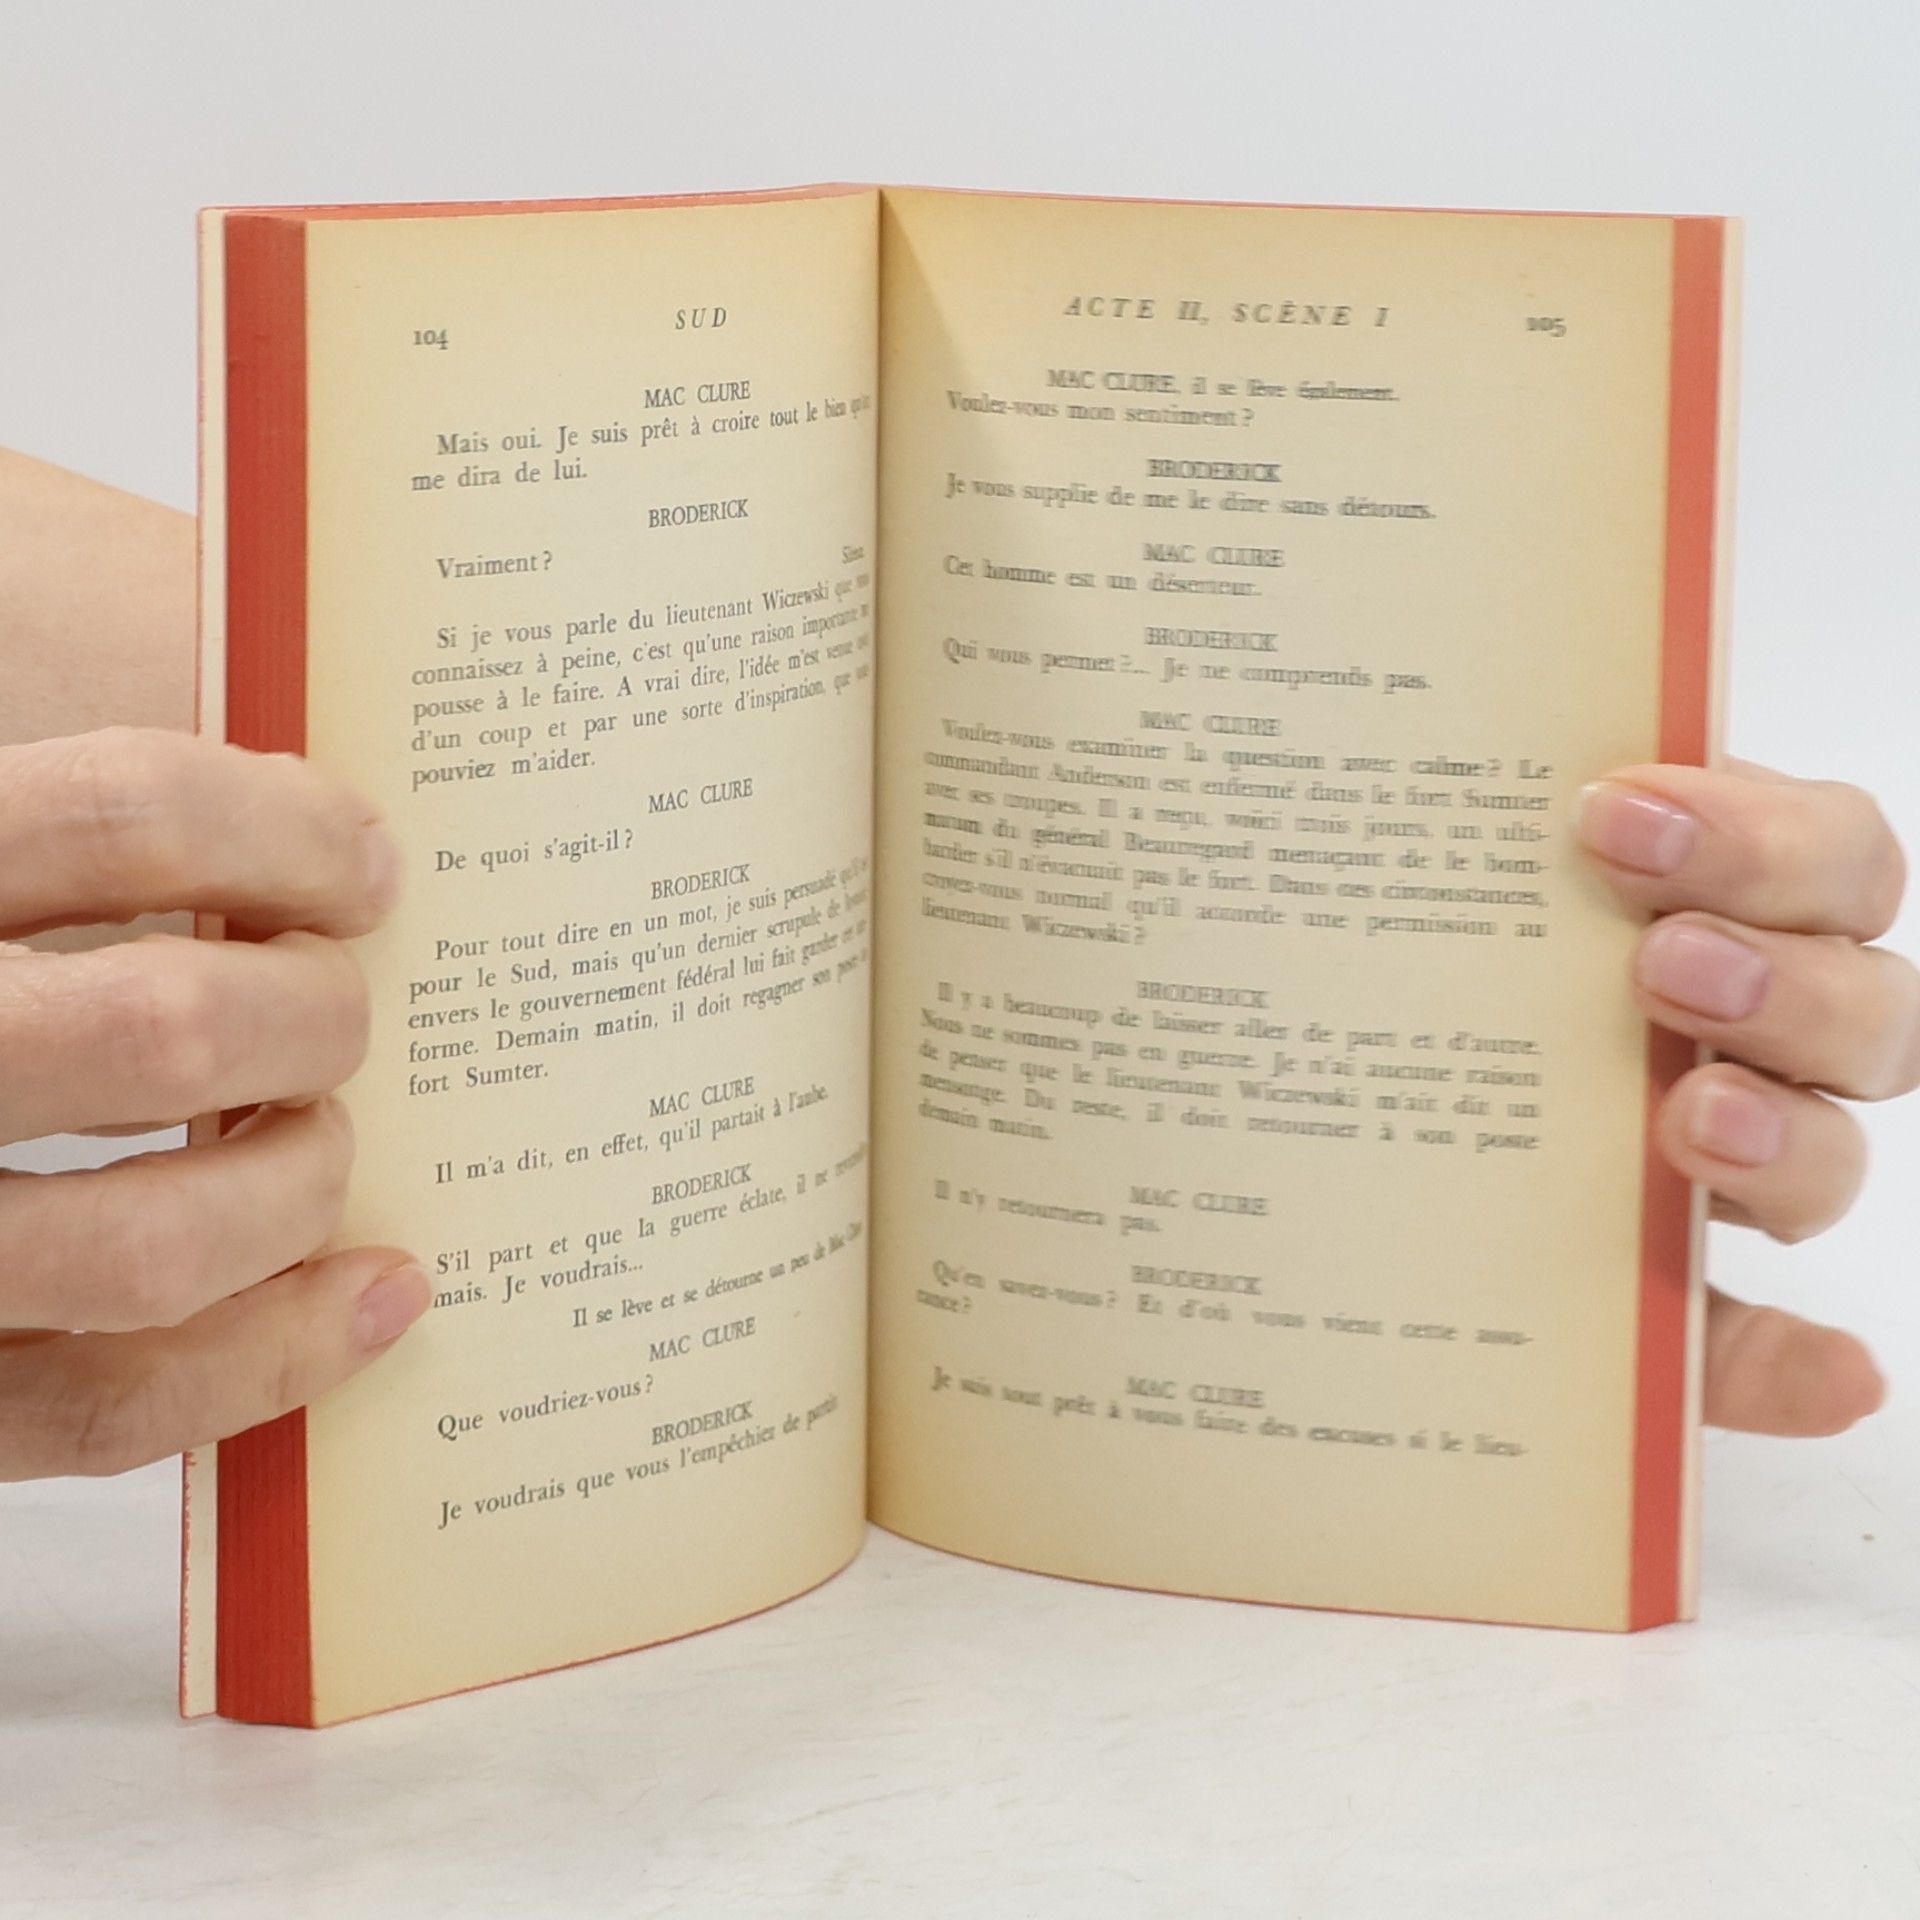 104
SUD
MAC CLURE
Mais oui. Je suis prêt à croire tout le bien qu'on
me dira de lui.
BRODERICK
Vraiment?
Si je vous parle du lieutenant Wiczewski que vous
connaissez à peine, c'est qu'une raison importante me
pousse à le faire. A vrai dire, l'idée m'est venue
d'un coup et par une sorte d'inspiration, que vous
pouviez m'aider.
MAC CLURE
De quoi s'agit-il?
BRODERICK
Pour tout dire en un mot, je suis persuadé qu'il
pour le Sud, mais qu'un dernier scrupule de
envers le gouvernement fédéral lui fait garder
forme. Demain matin, il doit regagner son poste
fort Sumter.
MAC CLURE
Il m'a dit, en effet, qu'il partait à l'aube.
BRODERICK
S'il part et que la guerre éclate, il ne
mais. Je voudrais...
Il se lève et se détourne un peu de Mac Clure
MAC CLURE
Que voudriez-vous?
BRODERICK
Je voudrais que vous l'empêchiez de partir.
ACTE II, SCÈNE I
105
MAC CLURE, il se lève également.
Voulez-vous mon sentiment?
BRODERICK
Je vous supplie de me le dire sans détours.
MAC CLURE
Cet homme est un déserteur.
BRODERICK
Qui vous permet?... Je ne comprends pas.
MAC CLURE
Voulez-vous examiner la question avec calme? Le
commandant Anderson est enfermé dans le fort Sumter
avec ses troupes. Il a reçu, voici trois jours, un ulti-
matum du général Beauregard menaçant de le bom-
barder s'il n'évacuait pas le fort. Dans ces circonstances,
croyez-vous normal qu'il accorde une permission au
lieutenant Wiczewski?
BRODERICK
Il y a beaucoup de laisser aller de part et d'autre.
Nous ne sommes pas en guerre. Je n'ai aucune raison
de penser que le lieutenant Wiczewski m'ait dit un
mensonge. Du reste, il doit retourner à son poste
demain matin.
MAC CLURE
Il n'y retournera pas.
BRODERICK
Qu'en savez-vous? Et d'où vous vient cette assu-
rance?
MAC CLURE
Je suis tout prêt à vous faire des excuses si le lieu-